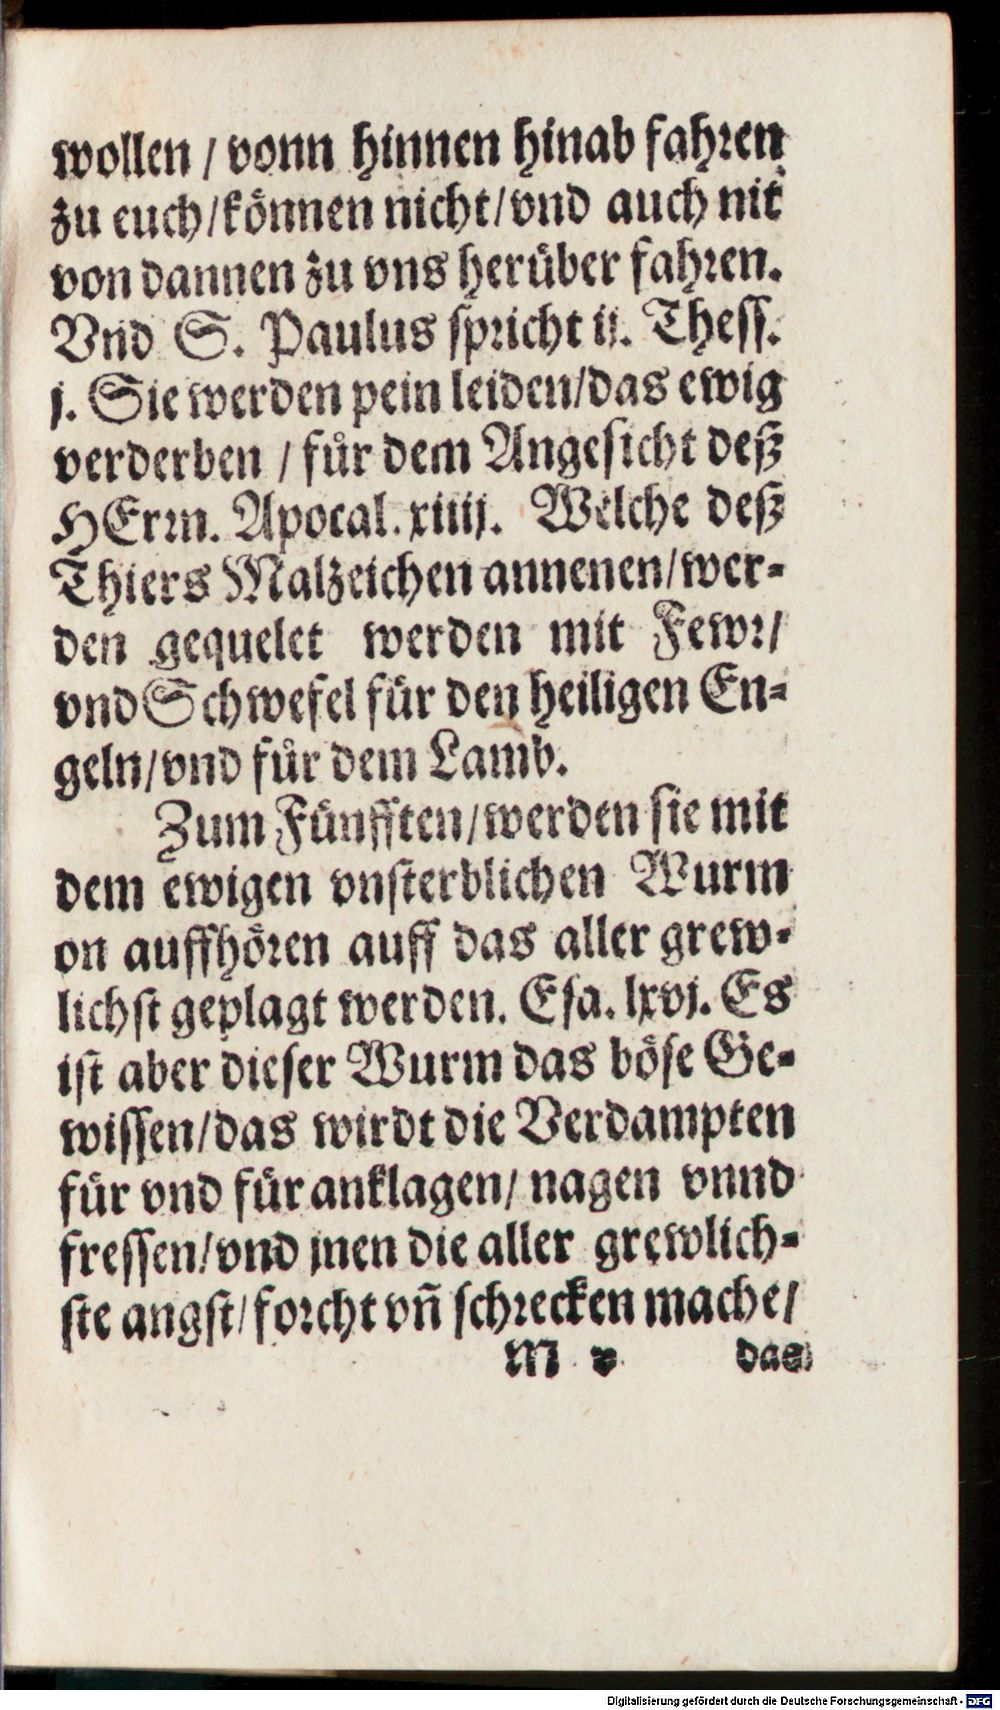 wollen / vonn hinnen hinab fahren
zu euch/können nicht/vnd auch nit
von dannen zu vns herüber fahren.
Vnd S. Paulus spricht ij. Thess.
j. Sie werden pein leiden/das ewig
verderben / für dem Angesicht deß
HErrn. Apocal. xiiij. Welche deß
Thiers Malzeichen annenen/wer-
den gequelet werden mit Fewr/
vnd Schwefel für den heiligen En-
geln/vnd für dem Lamb.
Zum Fünfften/werden sie mit
dem ewigen vnsterblichen Wurm
on auffhören auff das aller grew-
lichst geplagt werden. Esa. lxvj. Es
ist aber dieser Wurm das böse Ge-
wissen/das wirdt die Verdampten
für vnd für anklagen/ nagen vnnd
fressen/vnd jnen die aller grewlich-
ste angst/forcht vñ schrecken mache/
M v das
Digitalisierung gefördert durch die Deutsche Forschungsgemeinschaft - DFG